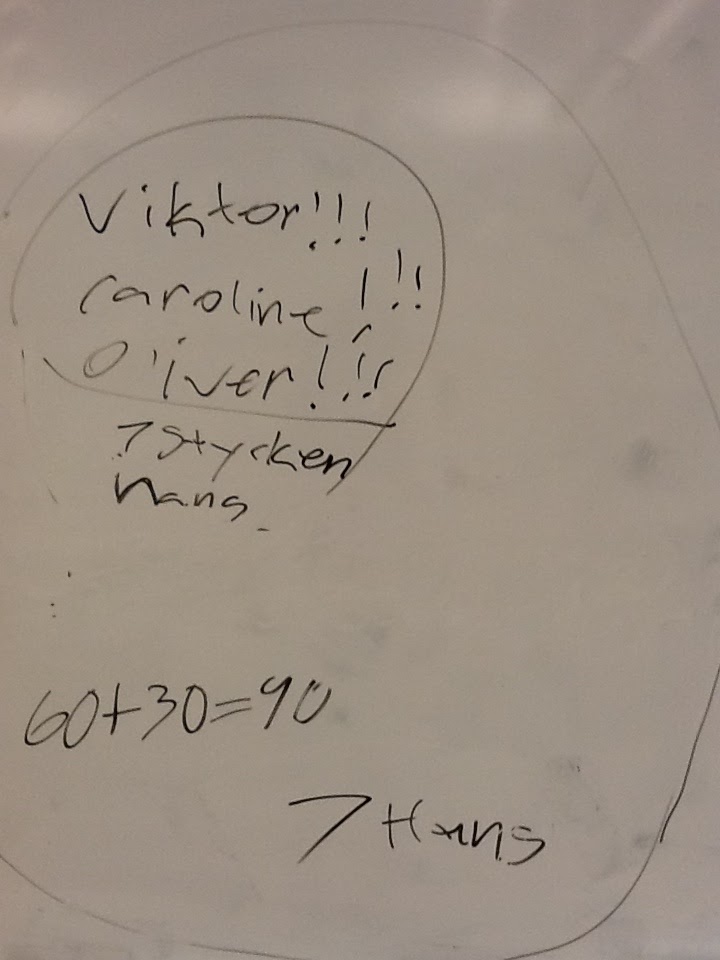 Viktor!!!
Caroline!!!
Oliver!!!
7 stycken
hans
60+30=90
7 Hans